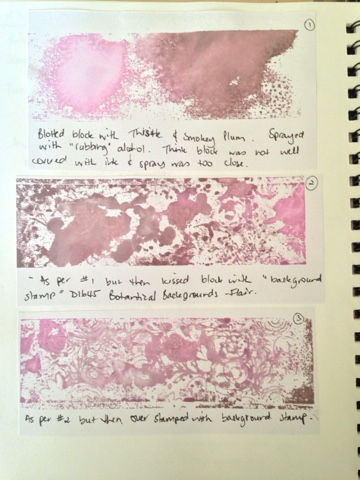 ①
Blotted block with Thistle & Smokey Plum. Sprayed
with "rubbing" alcohol. Think block was not well
covered with ink & spray was too close.
②
- As per #1 but then kissed block with "background
stamp" Dibus Botanical Backgrounds - Flair.
③
As per #2 but then over stamped with background stamp.